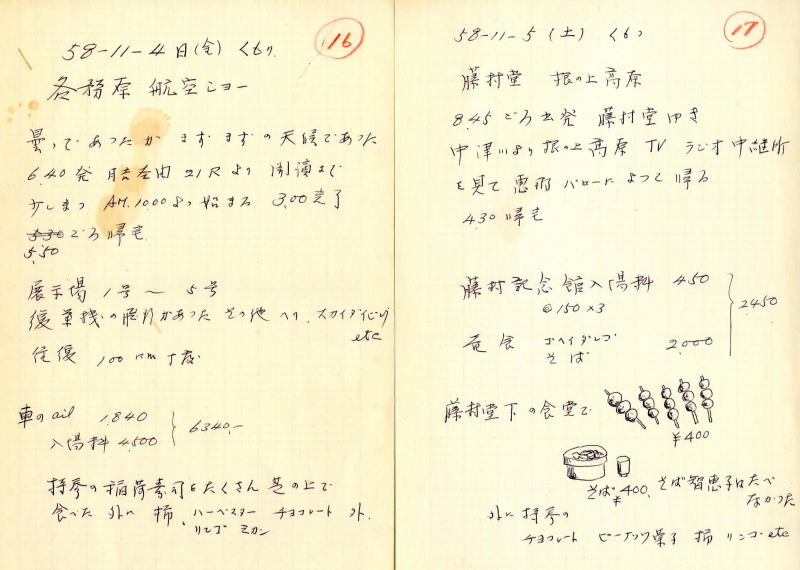 16
58-11-4日(金) くもり
各務原 航空ショー
曇ってあったが まずまずの天候であった
6.40発 21Rより 開演まで
少しまつ AM.1000より始まる 3.00完了
5.30ごろ帰宅
5.50
展示場 1号〜5号
複葉機の あった その他 ヘリ、スカイダイビング
etc
往復 100km丁度
車のoil 1.840
入場料 4.500 } 6340.-
持参の稲荷寿司をたくさん 芝の上で
食べた 外に 柿、ハーベスター チョコレート 外.
リンゴ ミカン
17
58-11-5(土) くもり
藤村堂 根の上高原
8.45ごろ出発 藤村堂ゆき
中津川より根の上高原 TV ラジオ中継所
を見て 恵那 バローによって帰る
4.30 帰宅
藤村記念館入場料 450
@150×3
昼食 ゴヘイダンゴ 2.000
そば
} 2450
藤村堂下の食堂で
¥400
そば ¥400、そば智恵子はたべ
なかった
外に持参の
チョコレート ピーナツ菓子 柿 リンゴ etc